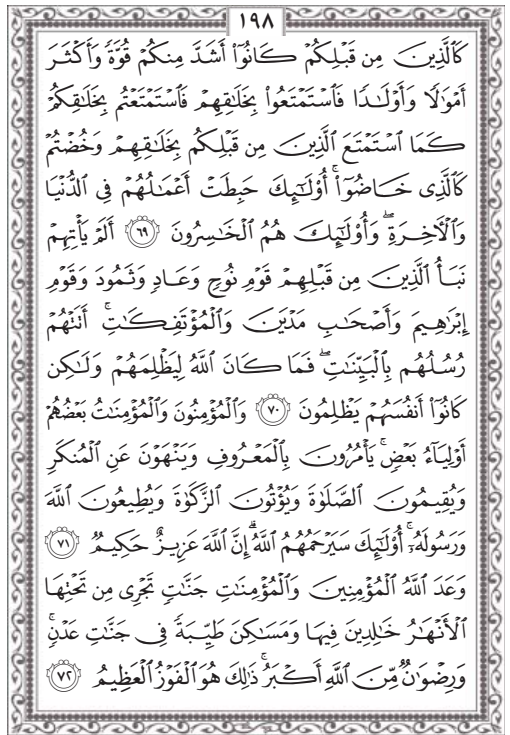 ١٩٨
كَٱلَّذِينَ مِن قَبْلِكُمْ كَانُوٓا۟ أَشَدَّ مِنكُمْ قُوَّةً وَأَكْثَرَ
أَمْوَٰلًا وَأَوْلَـٰدًا فَٱسْتَمْتَعُوا۟ بِخَلَـٰقِهِمْ فَٱسْتَمْتَعْتُم بِخَلَـٰقِكُمْ
كَمَا ٱسْتَمْتَعَ ٱلَّذِينَ مِن قَبْلِكُم بِخَلَـٰقِهِمْ وَخُضْتُمْ
كَٱلَّذِى خَاضُوٓا۟ ۚ أُو۟لَـٰٓئِكَ حَبِطَتْ أَعْمَـٰلُهُمْ فِى ٱلدُّنْيَا
وَٱلْـَٔاخِرَةِ ۖ وَأُو۟لَـٰٓئِكَ هُمُ ٱلْخَـٰسِرُونَ ٦٩ أَلَمْ يَأْتِهِمْ
نَبَأُ ٱلَّذِينَ مِن قَبْلِهِمْ قَوْمِ نُوحٍ وَعَادٍ وَثَمُودَ وَقَوْمِ
إِبْرَٰهِيمَ وَأَصْحَـٰبِ مَدْيَنَ وَٱلْمُؤْتَفِكَـٰتِ ۚ أَتَتْهُمْ
رُسُلُهُم بِٱلْبَيِّنَـٰتِ ۖ فَمَا كَانَ ٱللَّهُ لِيَظْلِمَهُمْ وَلَـٰكِن
كَانُوٓا۟ أَنفُسَهُمْ يَظْلِمُونَ ٧٠ وَٱلْمُؤْمِنُونَ وَٱلْمُؤْمِنَـٰتُ بَعْضُهُمْ
أَوْلِيَآءُ بَعْضٍ ۚ يَأْمُرُونَ بِٱلْمَعْرُوفِ وَيَنْهَوْنَ عَنِ ٱلْمُنكَرِ
وَيُقِيمُونَ ٱلصَّلَوٰةَ وَيُؤْتُونَ ٱلزَّكَوٰةَ وَيُطِيعُونَ ٱللَّهَ
وَرَسُولَهُۥٓ ۚ أُو۟لَـٰٓئِكَ سَيَرْحَمُهُمُ ٱللَّهُ ۗ إِنَّ ٱللَّهَ عَزِيزٌ حَكِيمٌ ٧١
وَعَدَ ٱللَّهُ ٱلْمُؤْمِنِينَ وَٱلْمُؤْمِنَـٰتِ جَنَّـٰتٍ تَجْرِى مِن تَحْتِهَا
ٱلْأَنْهَـٰرُ خَـٰلِدِينَ فِيهَا وَمَسَـٰكِنَ طَيِّبَةً فِى جَنَّـٰتِ عَدْنٍ ۚ
وَرِضْوَٰنٌ مِّنَ ٱللَّهِ أَكْبَرُ ۚ ذَٰلِكَ هُوَ ٱلْفَوْزُ ٱلْعَظِيمُ ٧٢